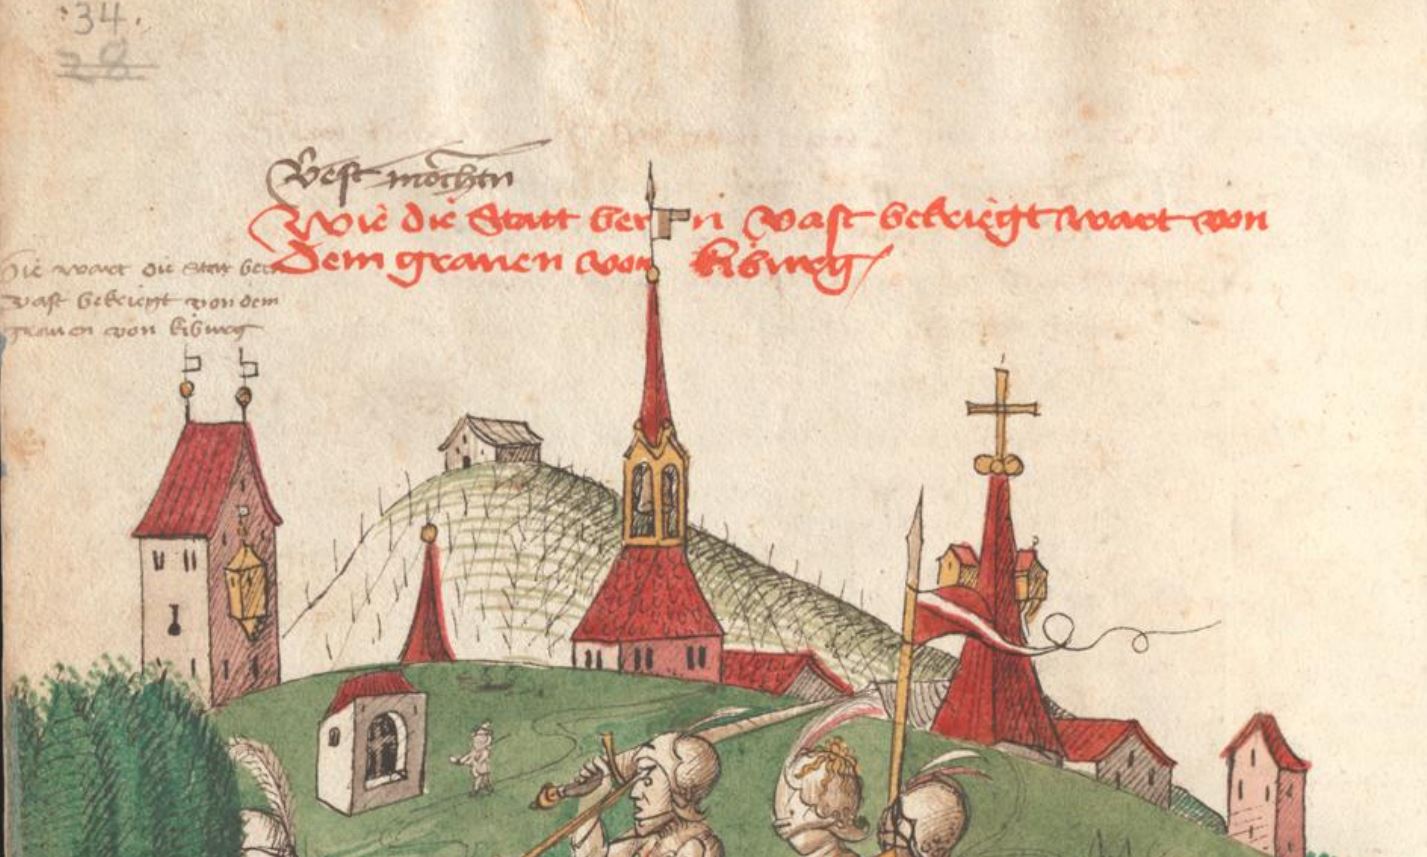 34.
28
Vest möchtn
Wie die Statt bern vast bekriegt wart von
Dem grauen von kiburg
Hie wart die Stat bern
vast bekriegt von dem
grauen von kiburg